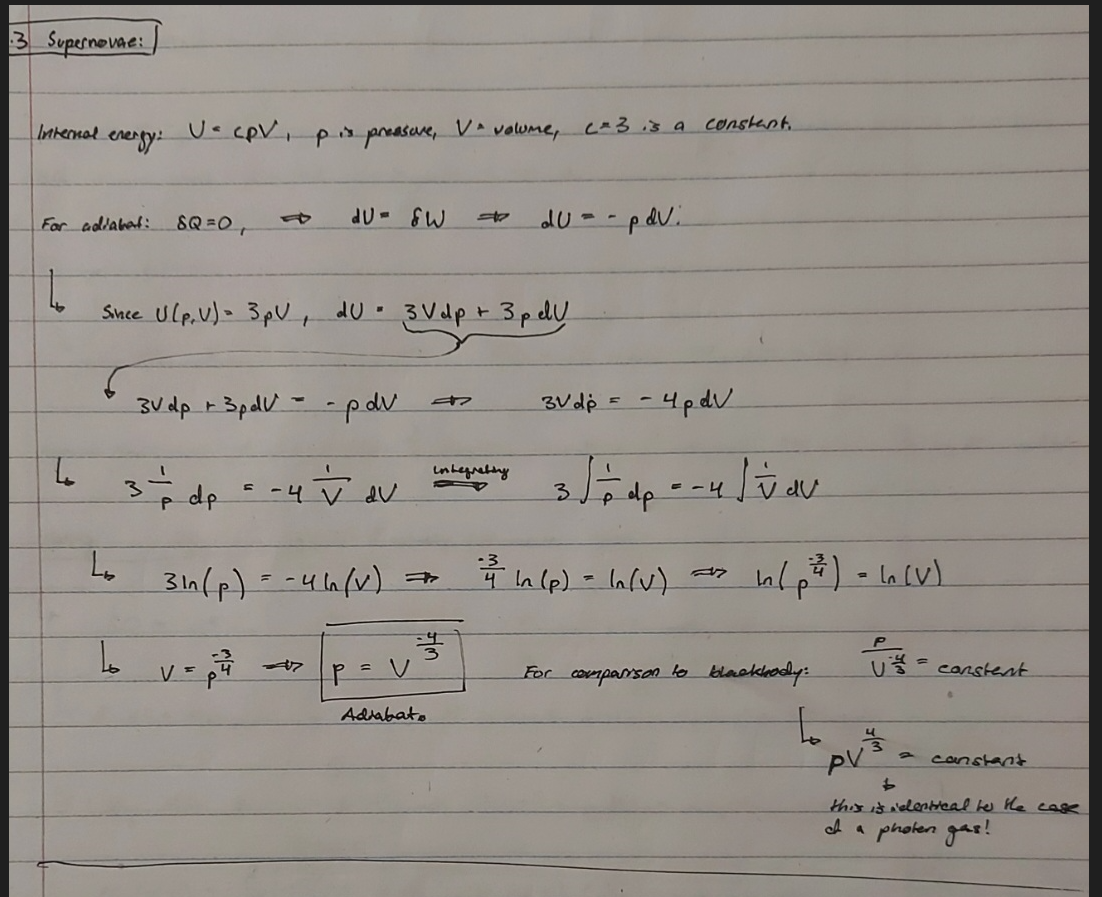 .3 Supernovae:
Internal energy: U = cpV, p is pressure, V = volume, c=3 is a constant.
For adiabat: δQ=0, ⇒ dU = δW ⇒ dU = - pdV.
↳ Since U(p,V) = 3pV, dU = 3Vdp + 3pdV
3Vdp + 3pdV = - pdV ⇒ 3Vdp = - 4pdV
↳ 3 1/p dp = -4 1/V dV integrating ⇒ 3∫1/p dp = -4∫1/V dV
↳ 3ln(p) = -4ln(V) ⇒ -3/4 ln(p) = ln(V) ⇒ ln(p^(-3/4)) = ln(V)
↳ V = p^(-3/4) ⇒ p = V^(-4/3) For comparison to blackbody: p/V^(-4/3) = constant
Adiabat.
↳ pV^(4/3) = constant
↓
this is identical to the case
of a photon gas!